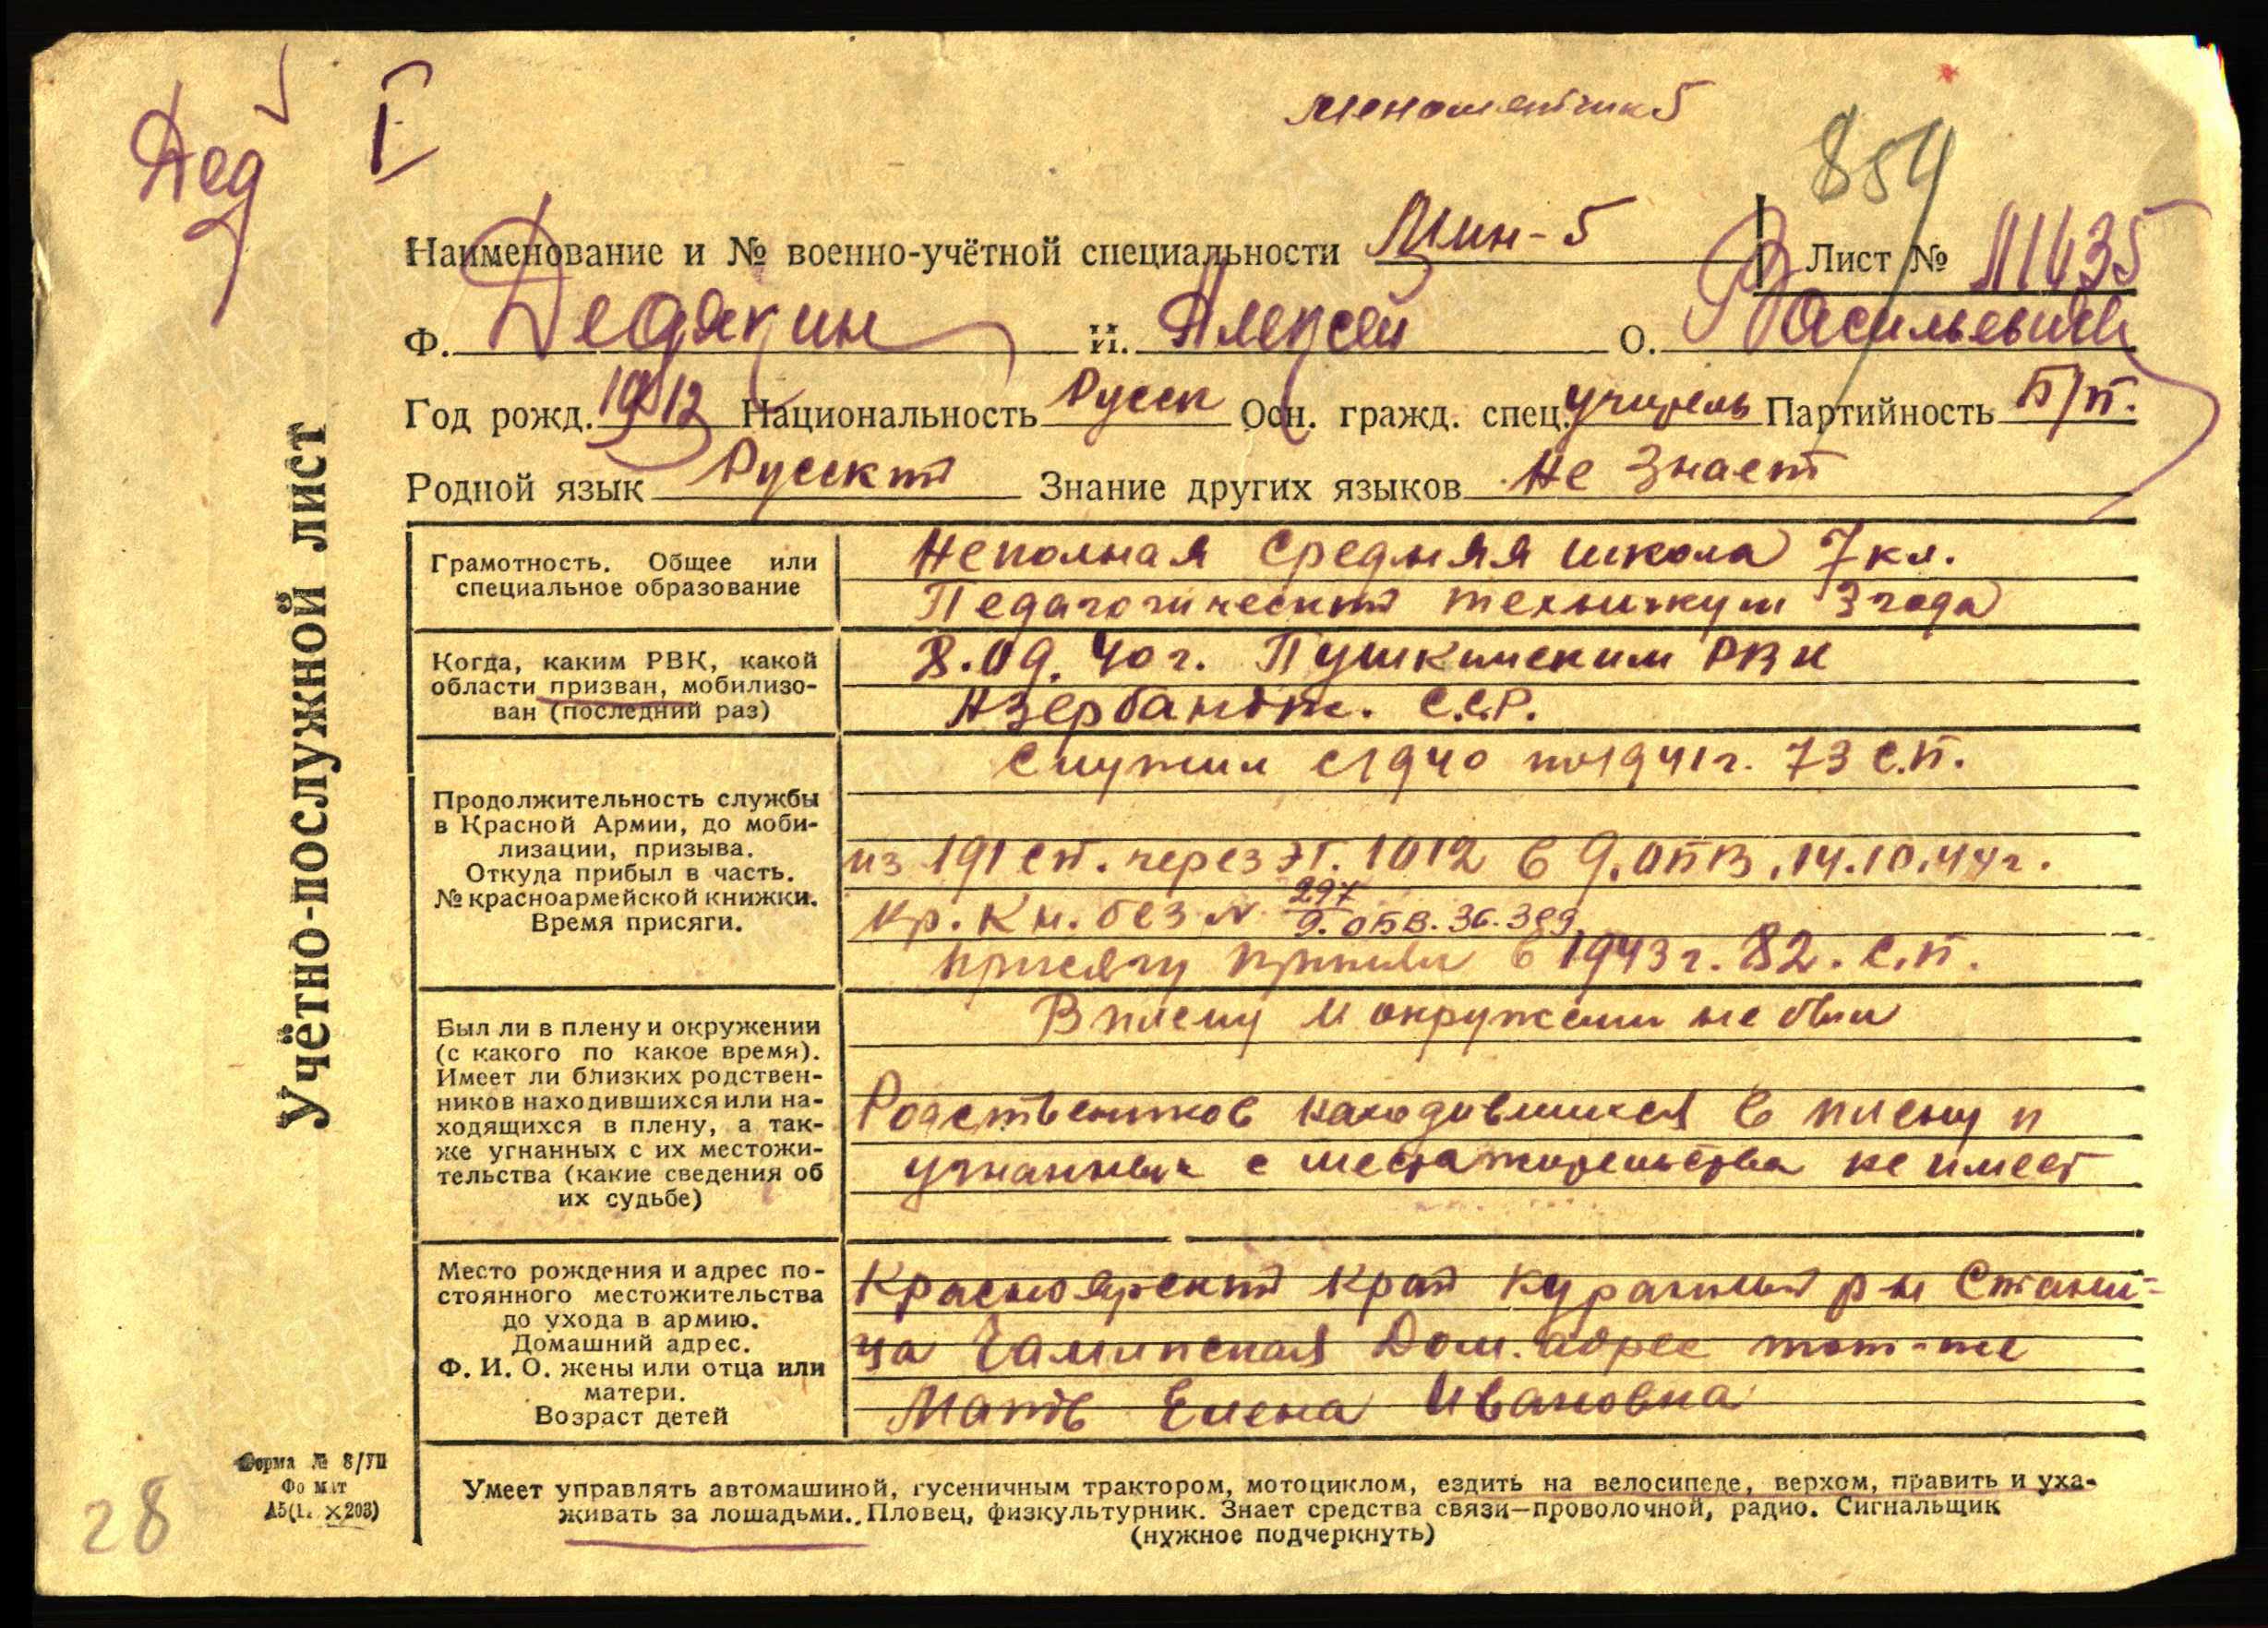 Дед
I
минометчик 5
854
Наименование и № военно-учётной специальности Мин-5 Лист № 11635
Ф. Дедякин И. Алексей О. Васильевич
Год рожд. 1912 Национальность Русск Осн. гражд. спец. учитель Партийность Б/п.
Родной язык Русский Знание других языков Не знает
Учётно-послужной лист
Грамотность. Общее или
специальное образование
Неполная средняя школа 7 кл.
Педагогический техникум 3 года
Когда, каким РВК, какой
области призван, мобилизо-
ван (последний раз)
8.09.40 г. Пушкинским РВК
Азербайдж. С.С.Р.
Продолжительность службы
в Красной Армии, до моби-
лизации, призыва.
Откуда прибыл в часть.
№ красноармейской книжки.
Время присяги.
Служил с 1940 по 1941 г. 73 с.п.
из 191 сп. через ЭГ. 1012 в 9.ОПВ. 14.10.44 г.
Кр. Кн. без №
присягу принял в 1943 г. 82. с.п.
Был ли в плену и окружении
(с какого по какое время).
Имеет ли близких родствен-
ников находившихся или на-
ходящихся в плену, а так-
же угнанных с их местожи-
тельства (какие сведения об
их судьбе)
В плену и окружении не был
Родственников находившихся в плену и
угнанных с места жительства не имеет
Место рождения и адрес по-
стоянного местожительства
до ухода в армию.
Домашний адрес.
Ф. И. О. жены или отца или
матери.
Возраст детей
Красноярский край р-н Стани-
ца Дом. адрес тот-же
Мать Елена Ивановна
Форма № 8/УП
Формат
А5(1 х 203)
28
Умеет управлять автомашиной, гусеничным трактором, мотоциклом, ездить на велосипеде, верхом, править и уха-
живать за лошадьми. Пловец, физкультурник. Знает средства связи—проволочной, радио. Сигнальщик
(нужное подчеркнуть)